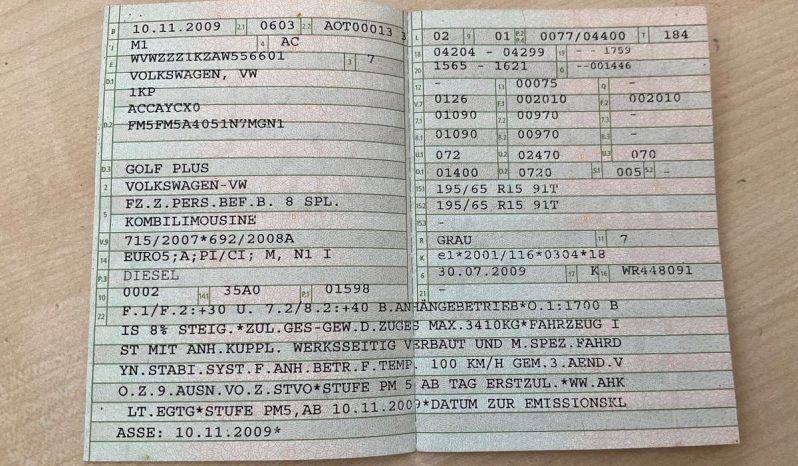 B 10.11.2009 2.1 0603 2.2 AOT00013 3
J M1 4 AC
E WVWZZZ1KZAW556601 3 7
D.1 VOLKSWAGEN, VW
1KP
ACCAYCX0
D.2 FM5FM5A4051N7MGN1
D.3 GOLF PLUS
2 VOLKSWAGEN-VW
5 FZ.Z.PERS.BEF.B. 8 SPL.
KOMBILIMOUSINE
V.9 715/2007*692/2008A
14 EURO5;A;PI/CI; M, N1 I
P.3 DIESEL
10 0002 14.1 35A0 P.1 01598
L 02 9 01 P.2 P.4 0077/04400 T 184
18 04204 - 04299 19 - - 1759
20 1565 - 1621 G --001446
12 - 13 00075 Q -
V.7 0126 F.1 002010 F.2 002010
7.1 01090 7.2 00970 7.3 -
8.1 01090 8.2 00970 8.3 -
U.1 072 U.2 02470 U.3 070
O.1 01400 O.2 0720 S.1 005 S.2 -
15.1 195/65 R15 91T
15.2 195/65 R15 91T
15.3 -
R GRAU 11 7
K e1*2001/116*0304*18
6 30.07.2009 17 K 16 WR448091
21 -
22 F.1/F.2:+30 U. 7.2/8.2:+40 B.ANHÄNGEBETRIEB*O.1:1700 B
IS 8% STEIG.*ZUL.GES-GEW.D.ZUGES MAX.3410KG*FAHRZEUG I
ST MIT ANH.KUPPL. WERKSSEITIG VERBAUT UND M.SPEZ.FAHRD
YN.STABI.SYST.F.ANH.BETR.F.TEMP. 100 KM/H GEM.3.AEND.V
O.Z.9.AUSN.VO.Z.STVO*STUFE PM 5 AB TAG ERSTZUL.*WW.AHK
LT.EGTG*STUFE PM5,AB 10.11.2009*DATUM ZUR EMISSIONSKL
ASSE: 10.11.2009*